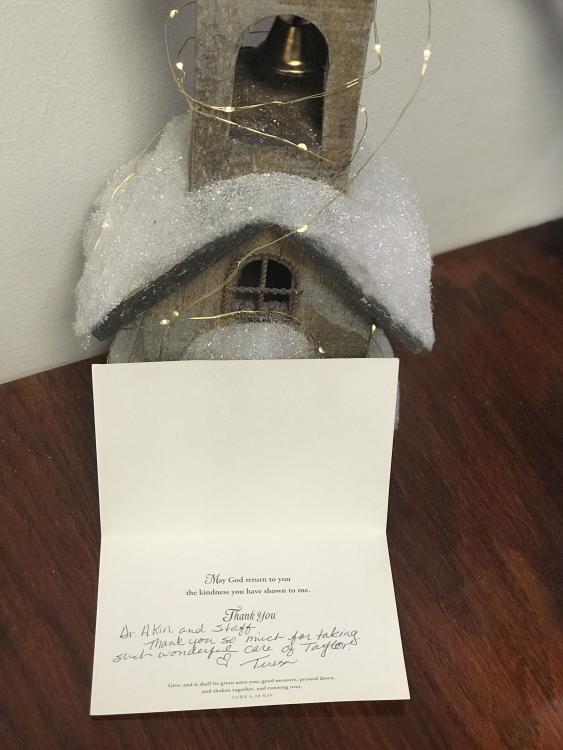 May God return to you
the kindness you have shown to me.
Thank You
Dr. Akin and Staff,
Thank you so much for taking
such wonderful care of Taylor.
♡ Teresa
Give, and it shall be given unto you; good measure, pressed down,
and shaken together, and running over.
LUKE 6:38 KJV